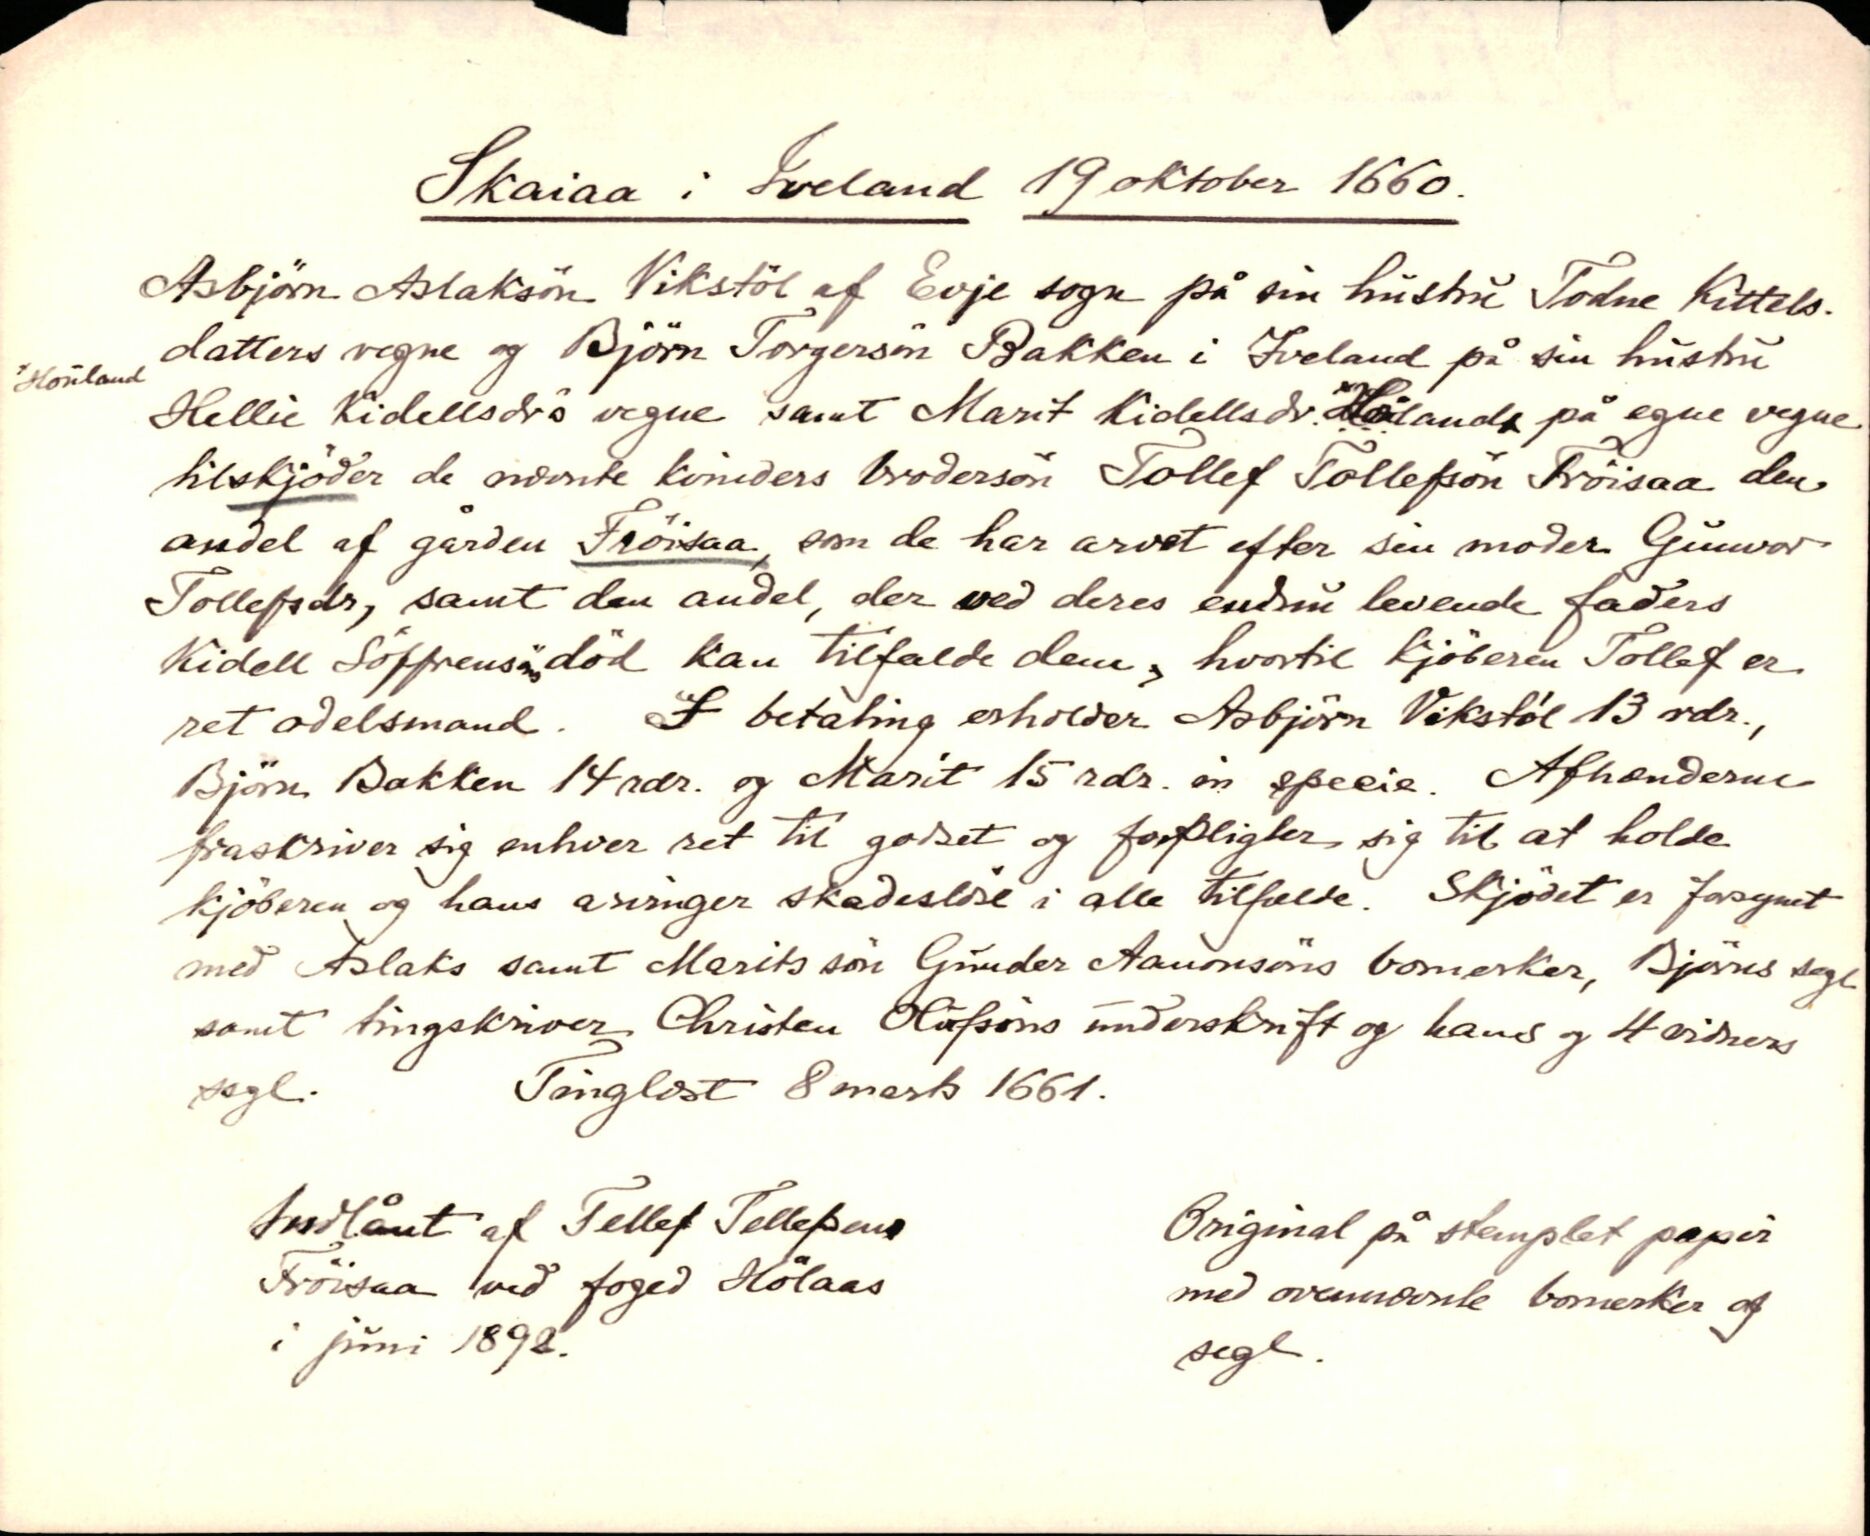 Skaiaa i Iveland 19 oktober 1660.
Asbjörn Aslaksön Vikstöl af Evje sogn på sin hustru Todne Kittels-
datters vegne og Björn Torgersön Bakken i Iveland på sin hustru
× Houland
Hellie Kidellsdr's vegne samt Marit Kidellsdr. × Höiland på egne vegne
tilskjöder de nævnte kvinders brodersön Tollef Tollefsön Fröisaa den
andel af gården Fröisaa, som de har arvet efter sin moder Gunvor
Tollefsdr, samt den andel, der ved deres endnu levende faders
Kidell Söffrensöns död kan tilfalde dem, hvortil kjöberen Tollef er
ret odelsmand. I betaling erholder Asbjörn Vikstöl 13 rdr.,
Björn Bakken 14 rdr. og Marit 15 rdr. in specie. Afhænderne
fraskriver sig enhver ret til godset og forpligter sig til at holde
kjöberen og hans arvinger skadeslöse i alle tilfælde. Skjödet er forsynet
med Aslaks samt Marits sön Gunder Aanonsöns bomerker, Björns segl
samt tingskriver Christen Olufsöns underskrift og hans og 4 vidners
segl. Tinglæst 8 marts 1661.
Indlånt af Tellef Tellefsen
Fröisaa ved foged Hölaas
i juni 1892.
Original på stemplet papir
med ovennævnte bomerker og
segl.